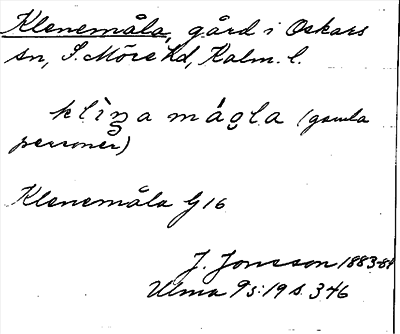 Klenemåla, gård i Oskars
sn, S. Möre hd, Kalm. l.
klìn̥a mágla (gamla
personer)
Klenemåla G 16
J. Jonsson 1883-84
Ulma 9s:19 s. 346